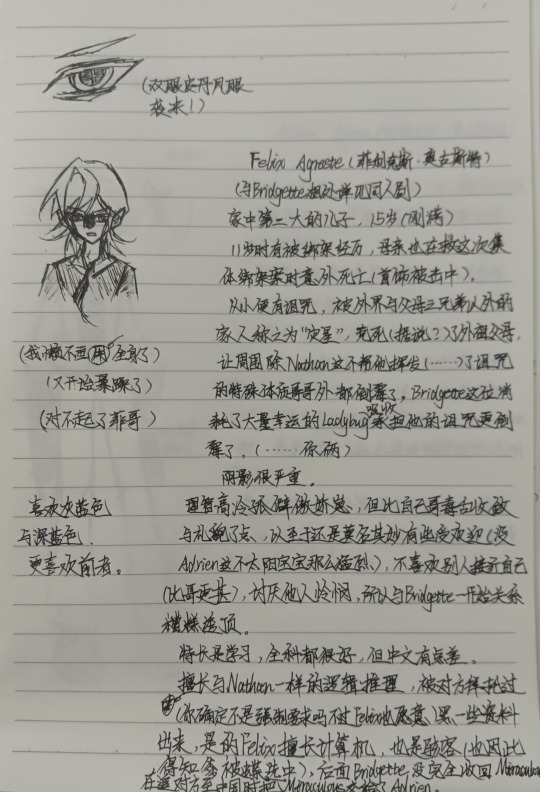 (双眼皮丹凤眼
袭来!)
Felix Agreste(菲利克斯·奥古斯特)
(与Bridgette相处详见同人剧)
家中第二大的儿子,15岁(刚满)
11岁时有被绑架经历,母亲也在接这次集
体绑架案时意外死亡(首饰被击中)。
从小便有诅咒,被外界与父母三兄弟以外的
家人称之为“灾星”,克死(据说?)了外祖父母,
让周围除Nathan这不帮他挥发(……)了诅咒
的特殊体质哥哥外都倒霉了。Bridgette这位消
耗了大量幸运的Ladybug 来把他的诅咒更倒
霉了。(……你俩)
阴影很严重。
(我懒不画 全身了)
(又开始暴躁了)
(对不起了菲哥)
喜欢灰蓝色
与深蓝色.
更喜欢前者。
理智高冷孤僻傲娇怠,但比自己哥毒舌收敛
与礼貌了点,以至于还是莫名其妙有些受欢迎(没
Adrien这小太阳宝宝那么猛烈),不喜欢别人接近自己
(比哥更甚),讨厌他人怜悯,所以与Bridgette一开始关系
糟糕透顶。
特长是学习,全科都很好,但中文有点差。
擅长与Nathan一样的逻辑推理,被对方拜托过
(你确定不是强制要求吗 不过Felix也愿意)黑一些资料
出来,是的Felix擅长计算机,也是骇客(也因此
得知爹被 洗中),后面Bridgette没完全收回Miraculous
在 对方 中国时把Miraculous 给了Adrien.